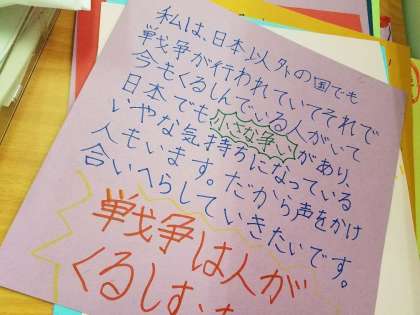 私は、日本以外の国でも
戦争が行われていてそれで
今もくるしんでいる人がいて
日本でも小さな争いがあり、
いやな気持ちになっている
人もいます。だから声をかけ
合いへらしていきたいです。
戦争は人が
くるしむ